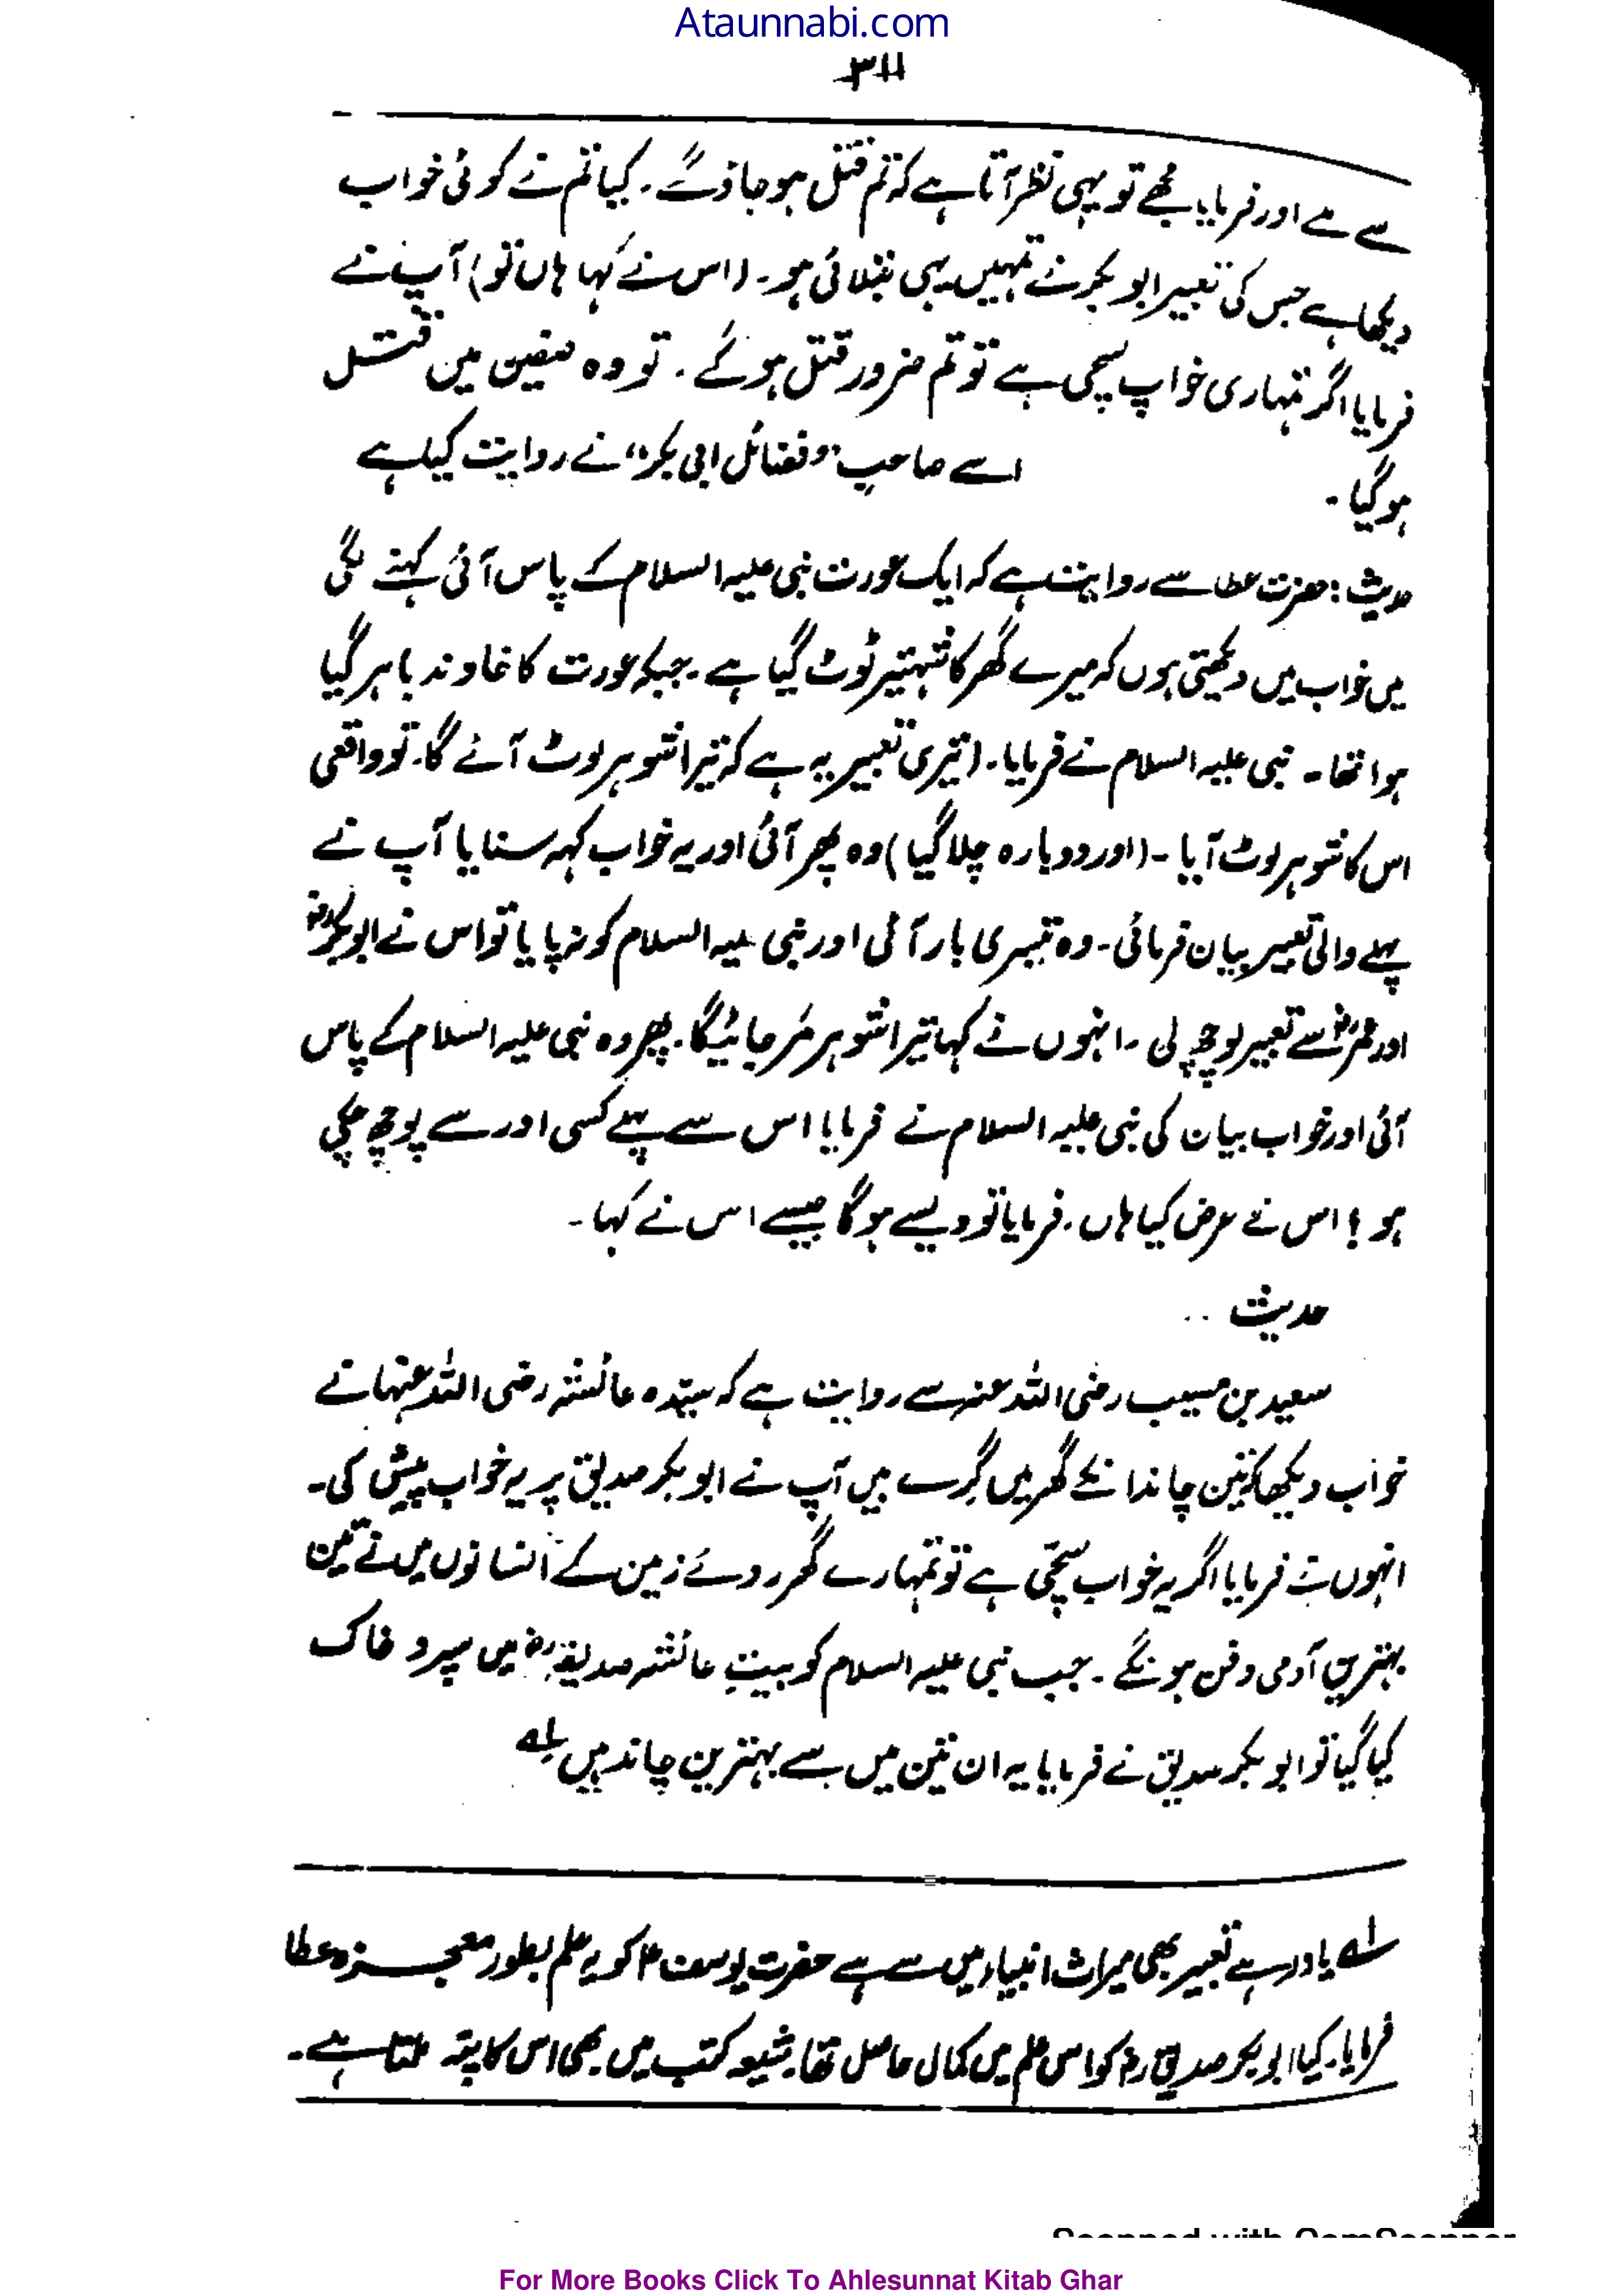 Ataunnabi.com
۳۱۱
سے ملے اور فرمایا مجھے تو یہی نظر آتا ہے کہ تم قتل ہو جاؤ گے۔ کیا تم نے کوئی خواب
دیکھا ہے جس کی تعبیر ابوبکر نے تمہیں یہی بتلائی ہو۔ (اس نے کہا ہاں تو) آپ نے
فرمایا اگر تمہاری خواب سچی ہے تو تم ضرور قتل ہو گے۔ تو وہ صفین میں قتل
ہو گیا۔
اسے صاحبِ "فضائل ابی بکر" نے روایت کیا ہے
حدیث: حضرت عطا سے روایت ہے کہ ایک عورت نبی علیہ السلام کے پاس آئی کہنے لگی
میں خواب میں دیکھتی ہوں کہ میرے گھر کا شہتیر ٹوٹ گیا ہے۔ جبکہ عورت کا خاوند باہر گیا
ہوا تھا۔ نبی علیہ السلام نے فرمایا۔ (تیری تعبیر یہ ہے کہ تیرا شوہر لوٹ آئے گا۔ تو واقعی
اس کا شوہر لوٹ آیا۔ (اور دوبارہ چلا گیا) وہ پھر آئی اور یہ خواب کہہ سنایا آپ نے
پہلے والی تعبیر بیان فرمائی۔ وہ تیسری بار آئی اور نبی علیہ السلام کو نہ پایا تو اس نے ابوبکرؓ
اور عمرؓ سے تعبیر پوچھ لی۔ انہوں نے کہا تیرا شوہر مَر جائیگا۔ پھر وہ نبی علیہ السلام کے پاس
آئی اور خواب بیان کی نبی علیہ السلام نے فرمایا اس سے پہلے کسی اور سے پوچھ چکی
ہو؟ اس نے عرض کیا ہاں۔ فرمایا تو ویسے ہو گا جیسے اس نے کہا۔
حدیث ..
سعید بن مسیب رضی اللہ عنہ سے روایت ہے کہ سیدہ عائشہ رضی اللہ عنہا نے
خواب دیکھا کہ تین چاند انکے گھر میں گرے ہیں آپ نے ابوبکر صدیق پر یہ خواب پیش کی۔
انہوں نے فرمایا اگر یہ خواب سچی ہے تو تمہارے گھر روئے زمین کے انسانوں میں تے تین
بہترین آدمی دفن ہونگے۔ جب نبی علیہ السلام کو بیتِ عائشہ صدیقہؓ میں سپرد خاک
کیا گیا تو ابوبکر صدیق نے فرمایا یہ ان تین میں سے بہترین چاند ہیں ۱؎
۱؎ یاد رہے تعبیر بھی میراث انبیاء میں سے ہے حضرت یوسف ؑ کو یہ علم بطور معجزہ عطا
فرمایا۔ کیا ابوبکر صدیق رض کو اس علم میں کمال حاصل تھا۔ شیعہ کتب میں بھی اس کا پتہ ملتا ہے۔
For More Books Click To Ahlesunnat Kitab Ghar